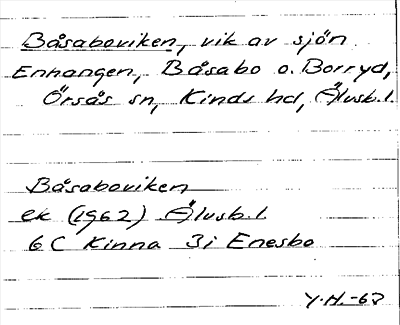 Båsaboviken, vik av sjön
Enhangen, Båsabo o. Borryd,
Örsås sn, Kinds hd, Älvsb. l.
Båsaboviken
ek (1962) Älvsb. l.
6 C Kinna 3i Enesbo
Y.H. -63